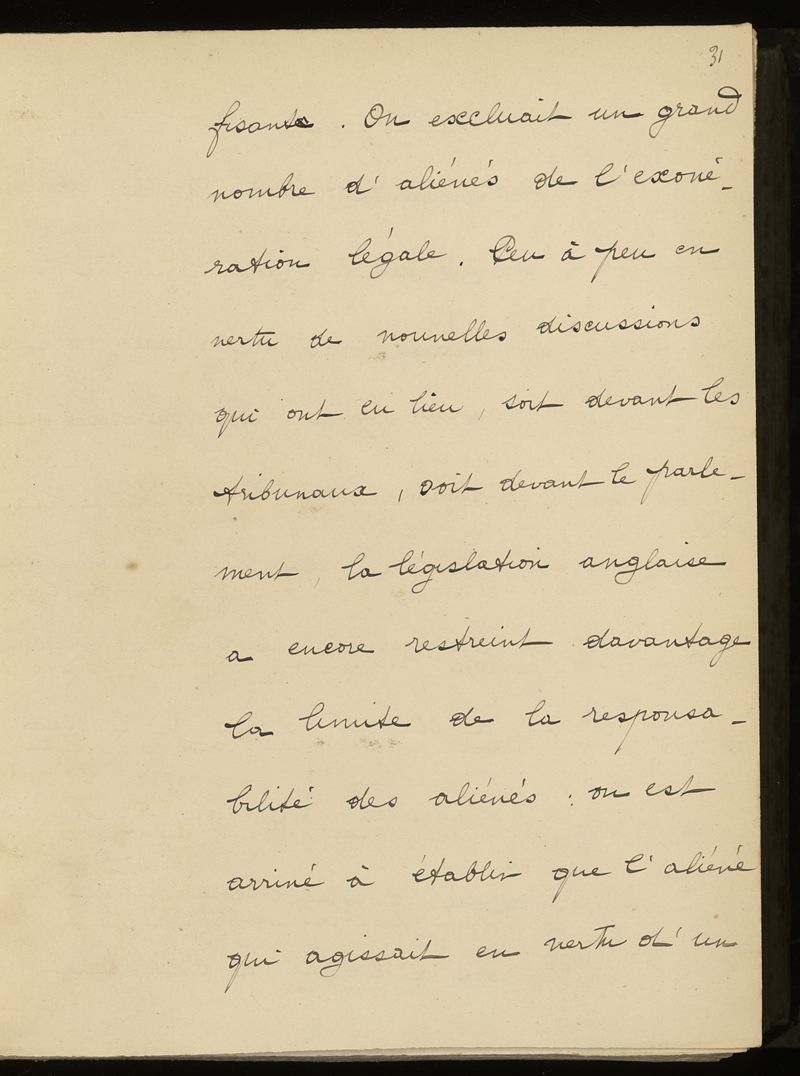 31
fisante. On excluait un grand
nombre d'aliénés de l'exoné-
ration légale. Peu à peu en
vertu de nouvelles discussions
qui ont eu lieu, soit devant les
tribunaux, soit devant le parle-
ment, la législation anglaise
a encore restreint davantage
la limite de la responsa-
bilité des aliénés : on est
arrivé à établir que l'aliéné
qui agissait en vertu d'un